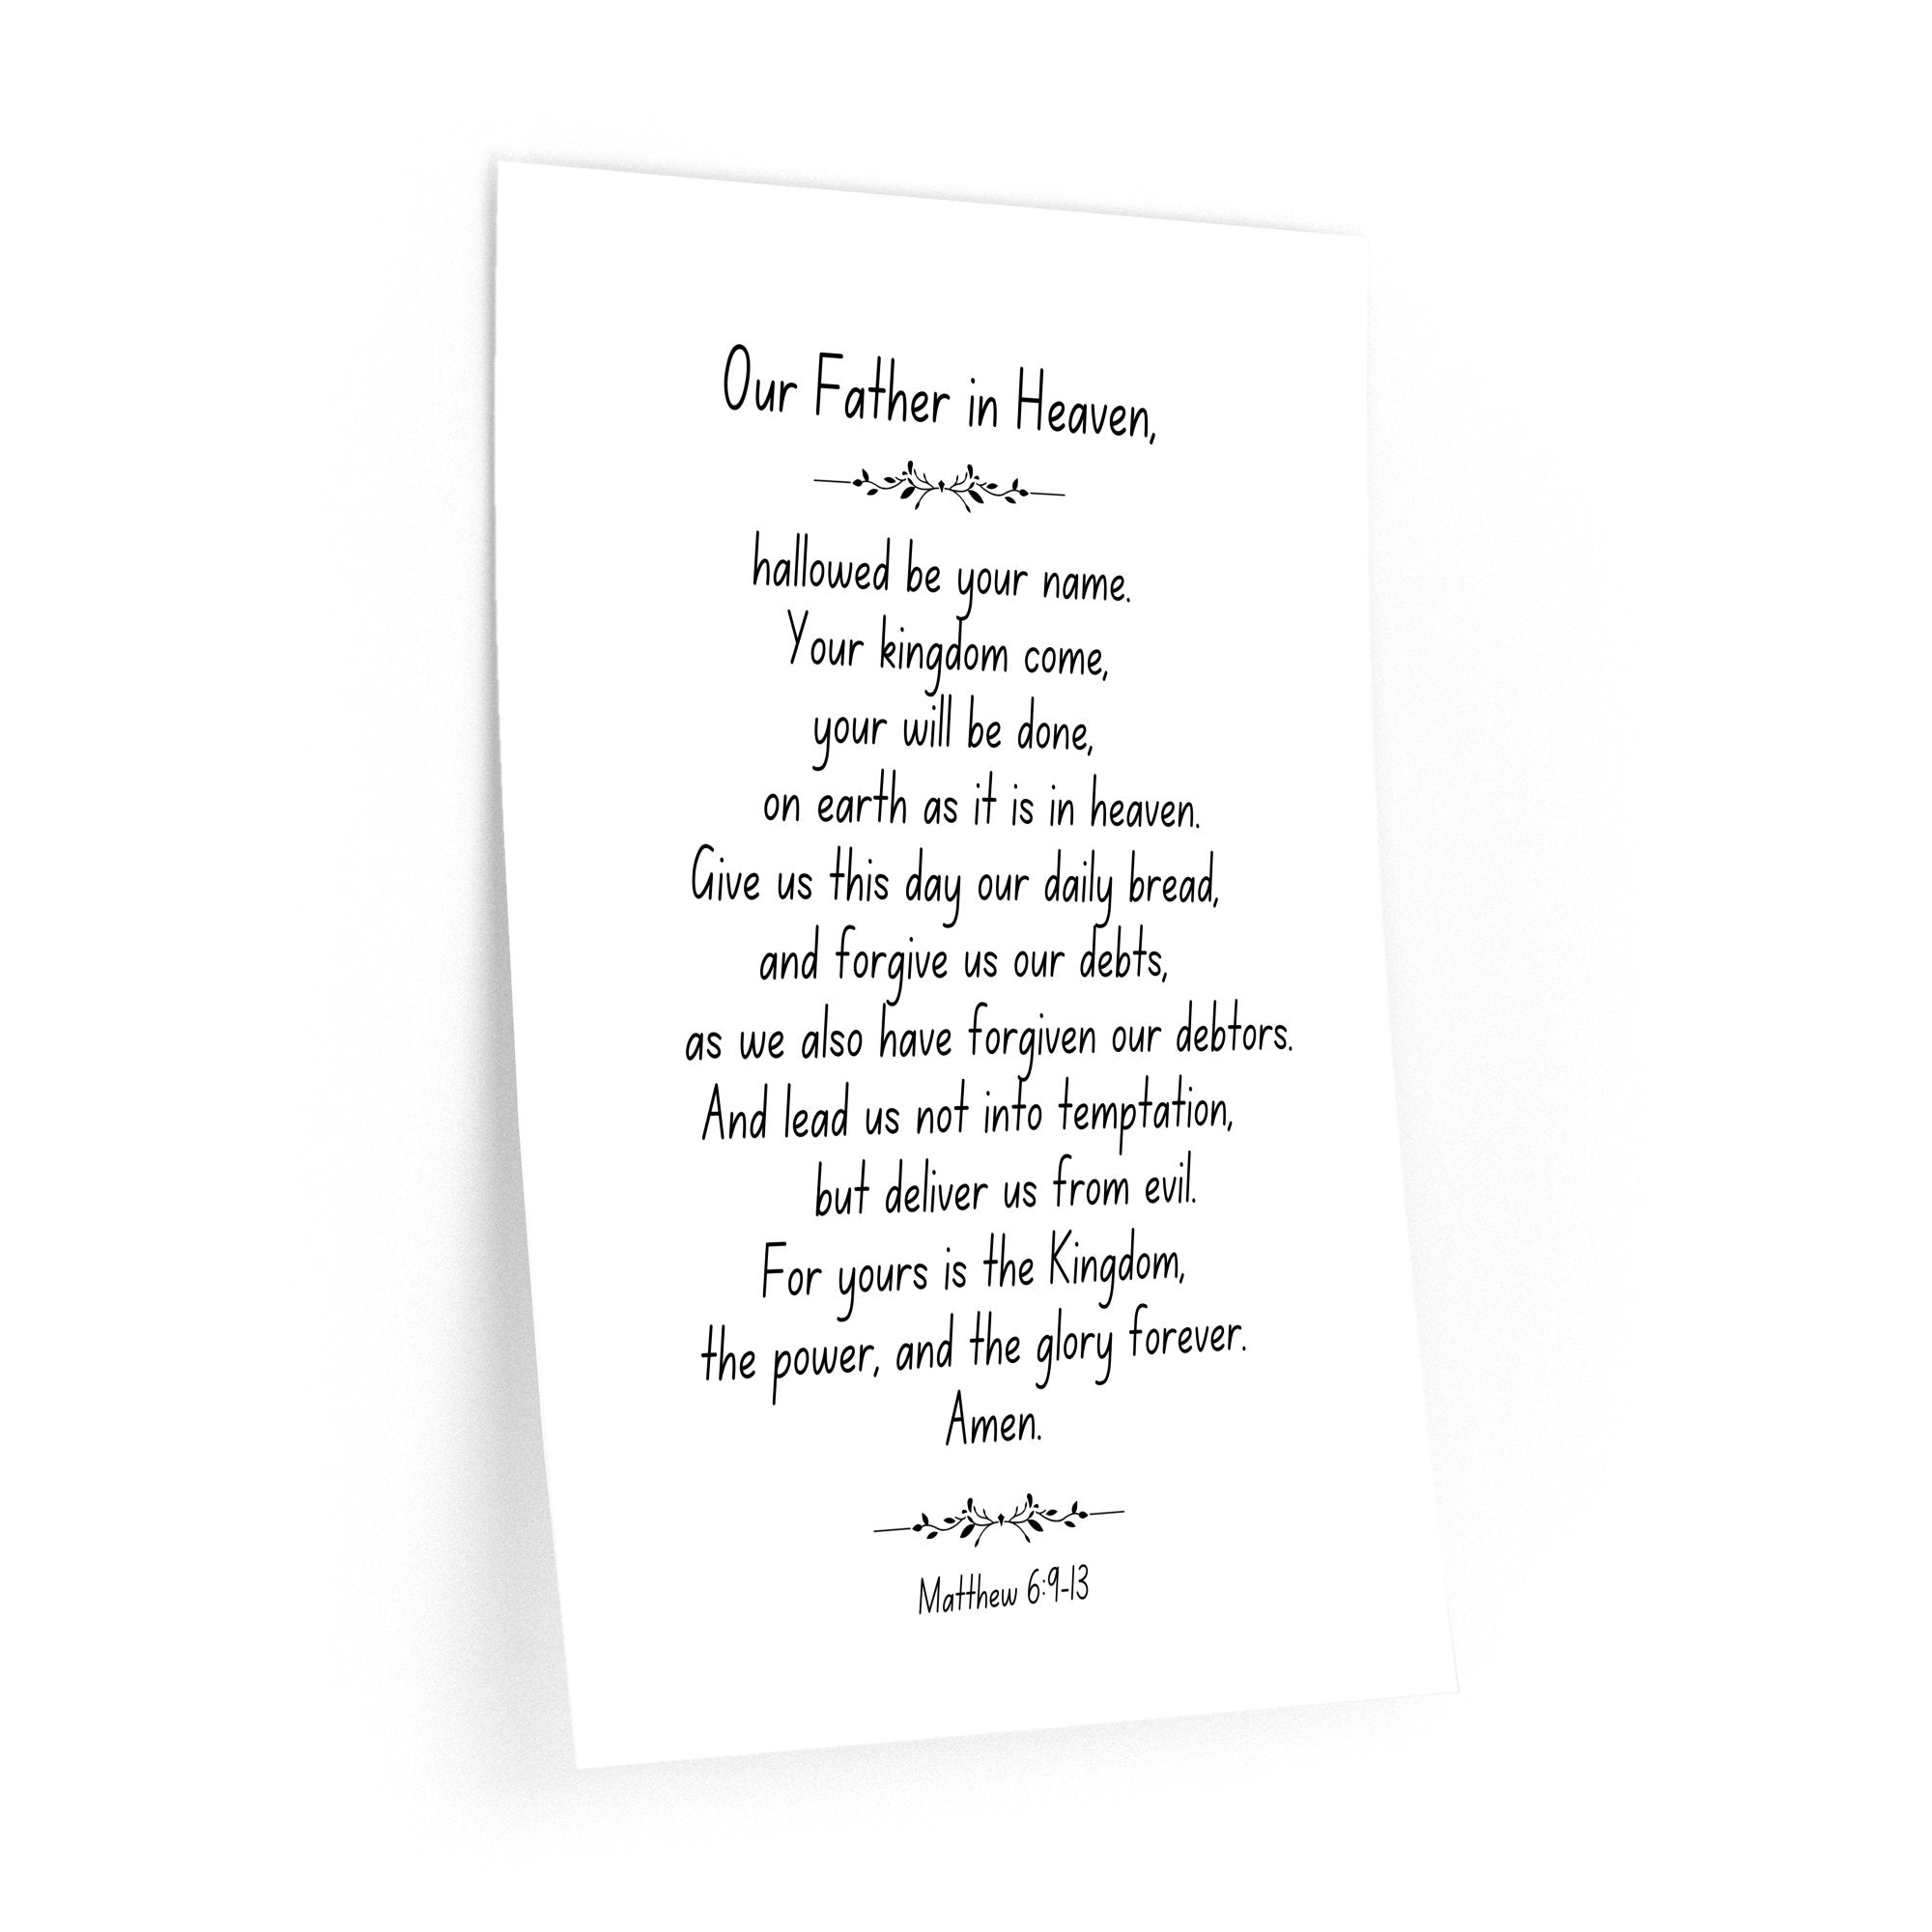 Our Father in Heaven,
hallowed be your name.
Your kingdom come,
your will be done,
on earth as it is in heaven.
Give us this day our daily bread,
and forgive us our debts,
as we also have forgiven our debtors.
And lead us not into temptation,
but deliver us from evil.
For yours is the Kingdom,
the power, and the glory forever.
Amen.
Matthew 6:9-13